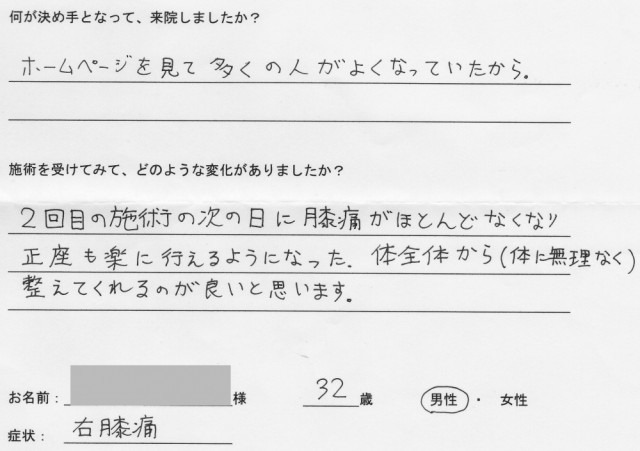 何が決め手となって、来院しましたか？
ホームページを見て多くの人がよくなっていたから。
施術を受けてみて、どのような変化がありましたか？
2回目の施術の次の日に膝痛がほとんどなくなり
正座も楽に行えるようになった。体全体から(体に無理なく)
整えてくれるのが良いと思います。
お名前： 様 32 歳 男性 ・ 女性
症状： 右膝痛